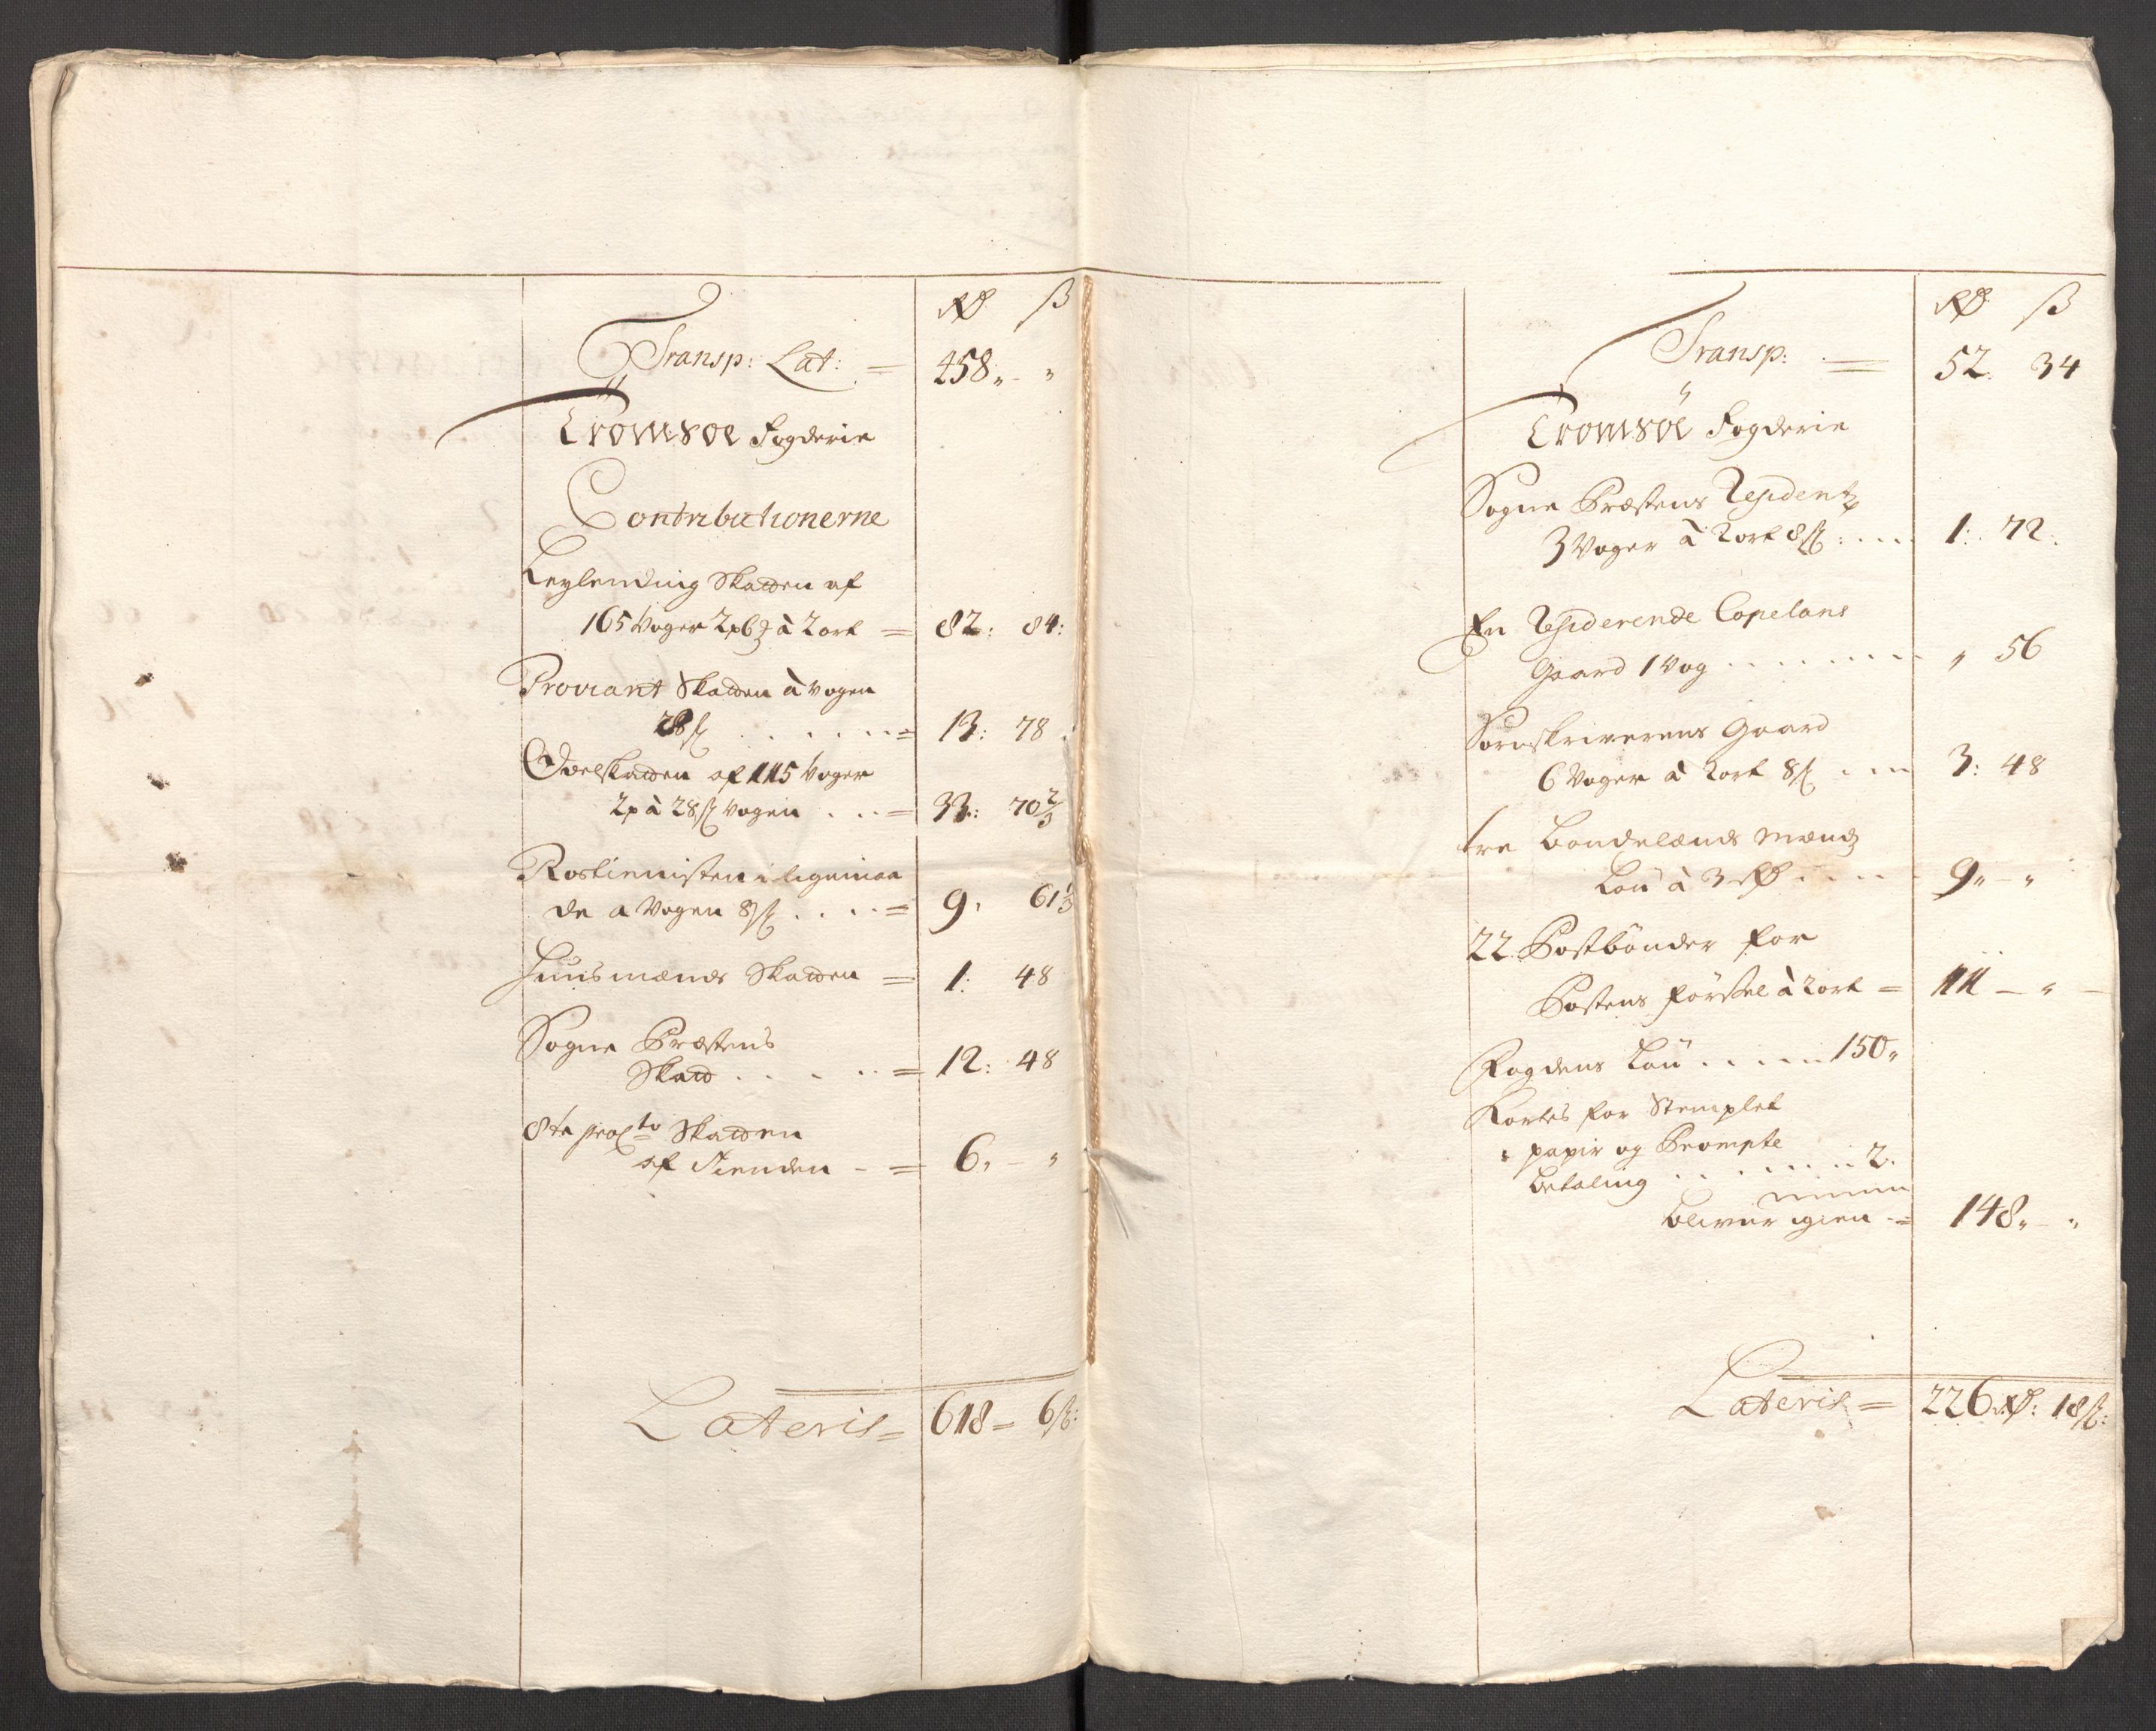 Rdr ß
Transp: Lat: = 458 „ - „
Tromsøe Fogderie
Contributionerne
Leylending Skatten af
165 Voger 2 p 6 à 2 ort = 82: 84:
Proviant Skatten à Vogen
28 ß . . . . . . = 13: 78
Odelskatten af 115 Voger
2 p à 28 ß Vogen . . . = 33: 70 2/3
Rostienisten i ligemaa
de a Vogen 8 ß . . . . = 9, 61 1/3
Huusmænds Skatten = 1: 48
Sogne Præstens
Skatt . . . . . = 12: 48
8te proCto Skatten
af Tienden - = 6, - „
Lateris = 618 = 6 ß:
Rdr ß
Transp: = 52. 34
Tromsøe Fogderie
Sogne Præstens Residentz
3 Voger à 2 ort 8 ß: . . . 1:. 72:
En Residerende Capelans
Gaard 1 Vog . . . . . . . . „ 56
Sorenskriverens Gaard
6 Voger à 2 ort 8 ß . . . 3: 48
tre Bondelænds mænds
Løn à 3 Rdr . . . . 9 „ - „
22 Postbönder for
Postens förssel à 2 ort = 11 - „ -
Fogdens Lön . . . . . 150 „
Kortes for Stemplet
papir og Prompte
betaling . . . . . . . 2.
bliver igien = 148 „ - „
Lateris = 226 Rdr: 18 ß: